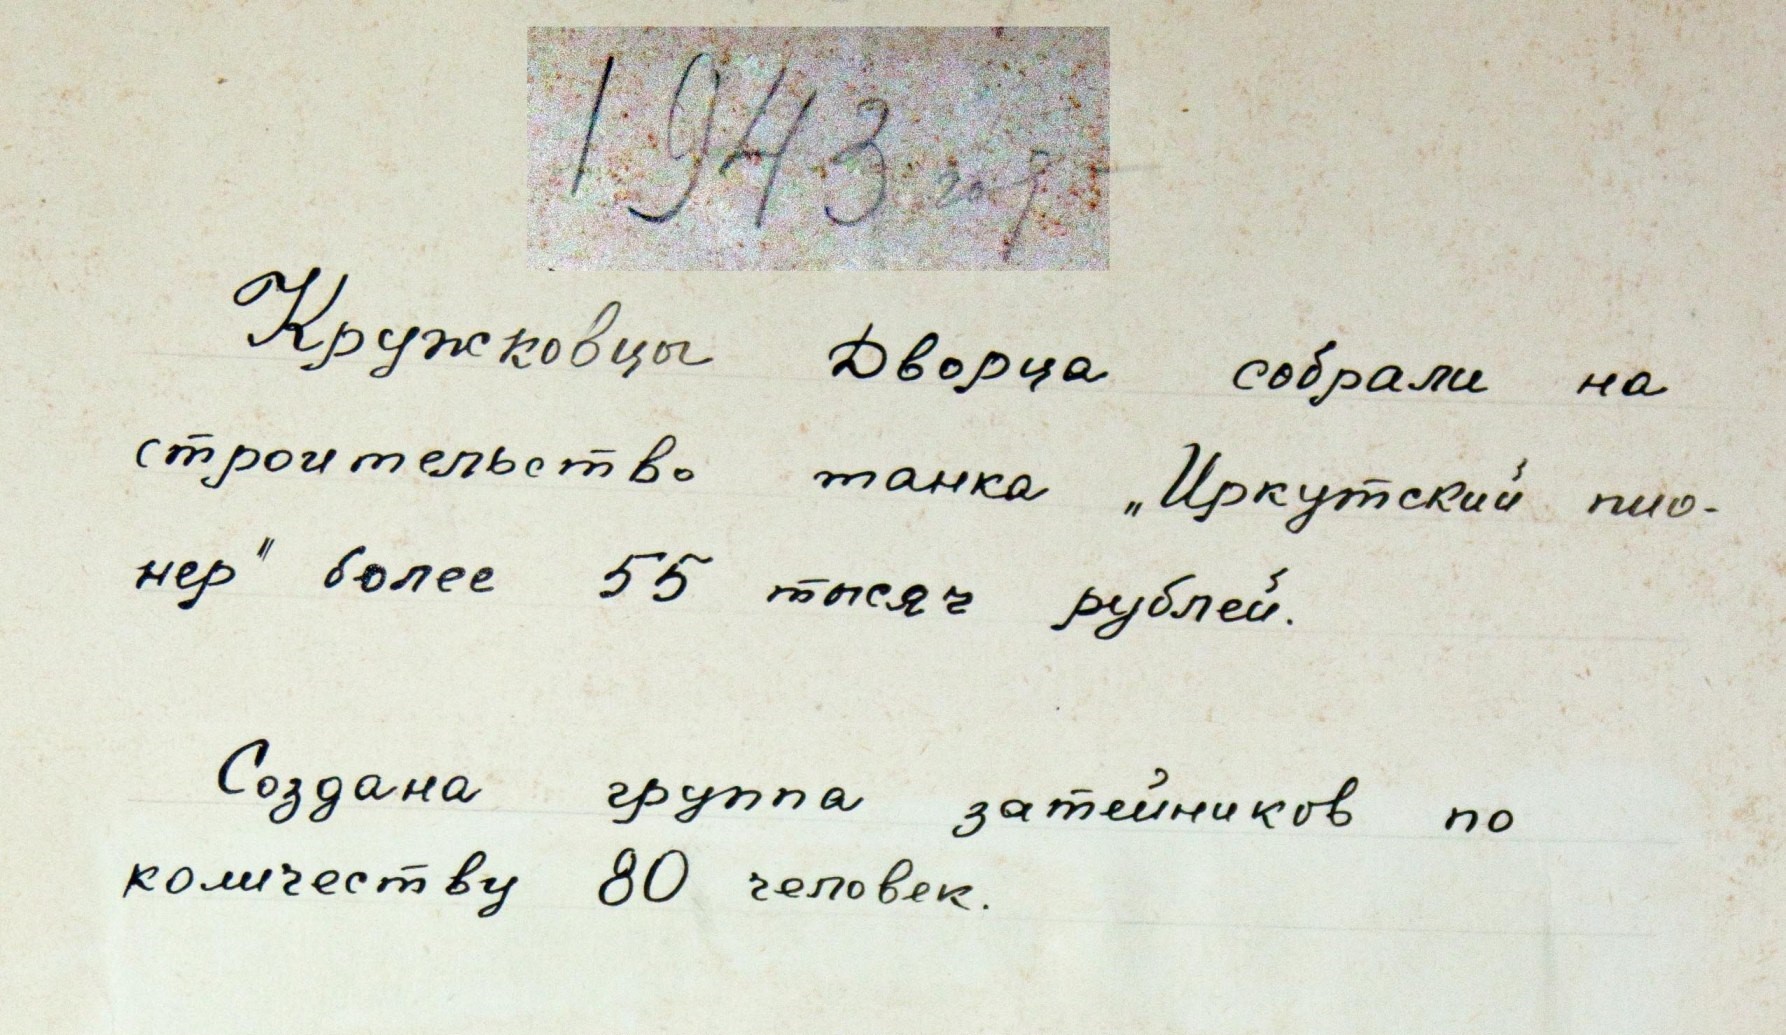 1943 год
Кружковцы Дворца собрали на
строительство танка „Иркутский пио-
нер" более 55 тысяч рублей.
Создана группа затейников по
количеству 80 человек.